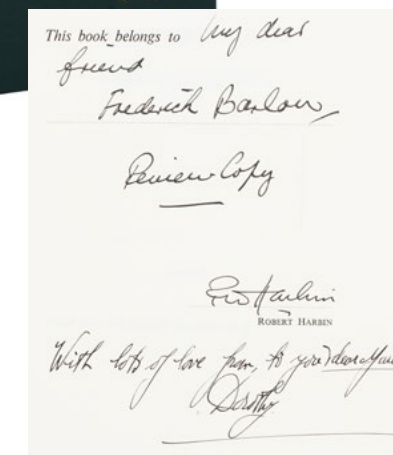 This book belongs to my dear
friend
Frederick Barlow
Review Copy
Harbin
ROBERT HARBIN
With lots of love from, to you dear
Dorothy